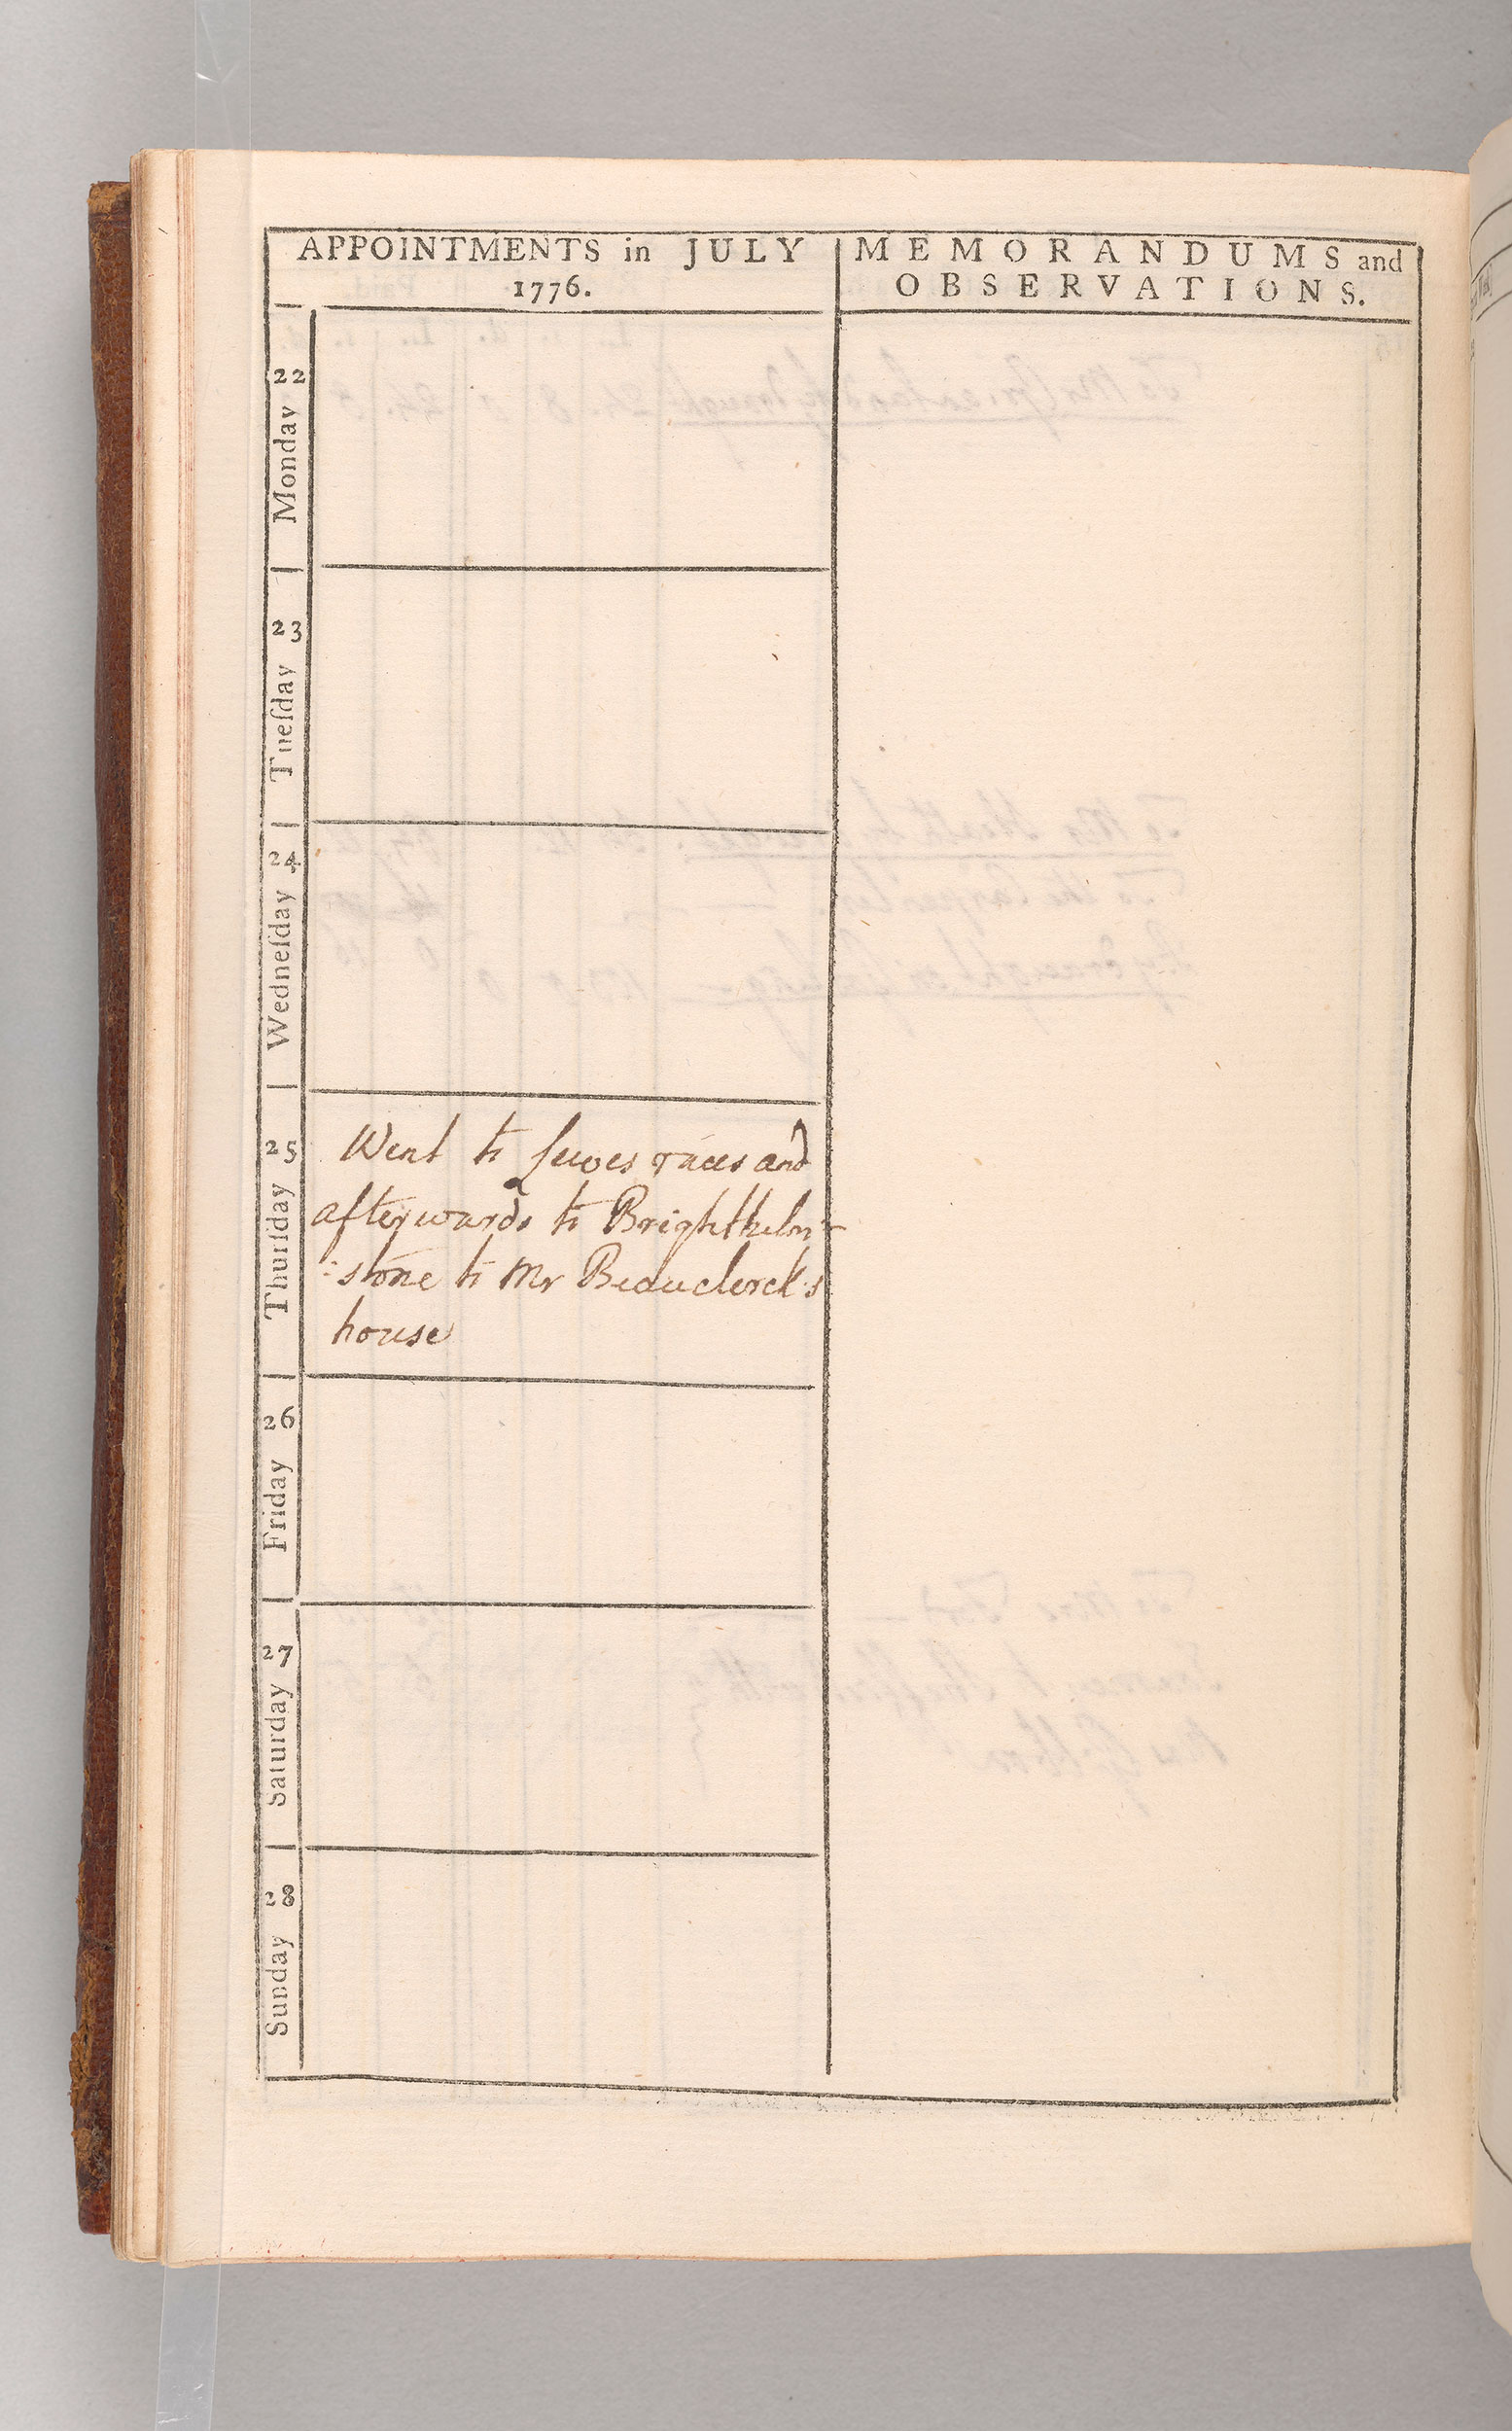 APPOINTMENTS in JULY
1776.
MEMORANDUMS and
OBSERVATIONS.
22 Monday
23 Tueſday
24 Wedneſday
25 Thurſday
Went to Lewes races and
afterwards to Brighthelm-
:stone to Mr Beauclerck's
house
26 Friday
27 Saturday
28 Sunday